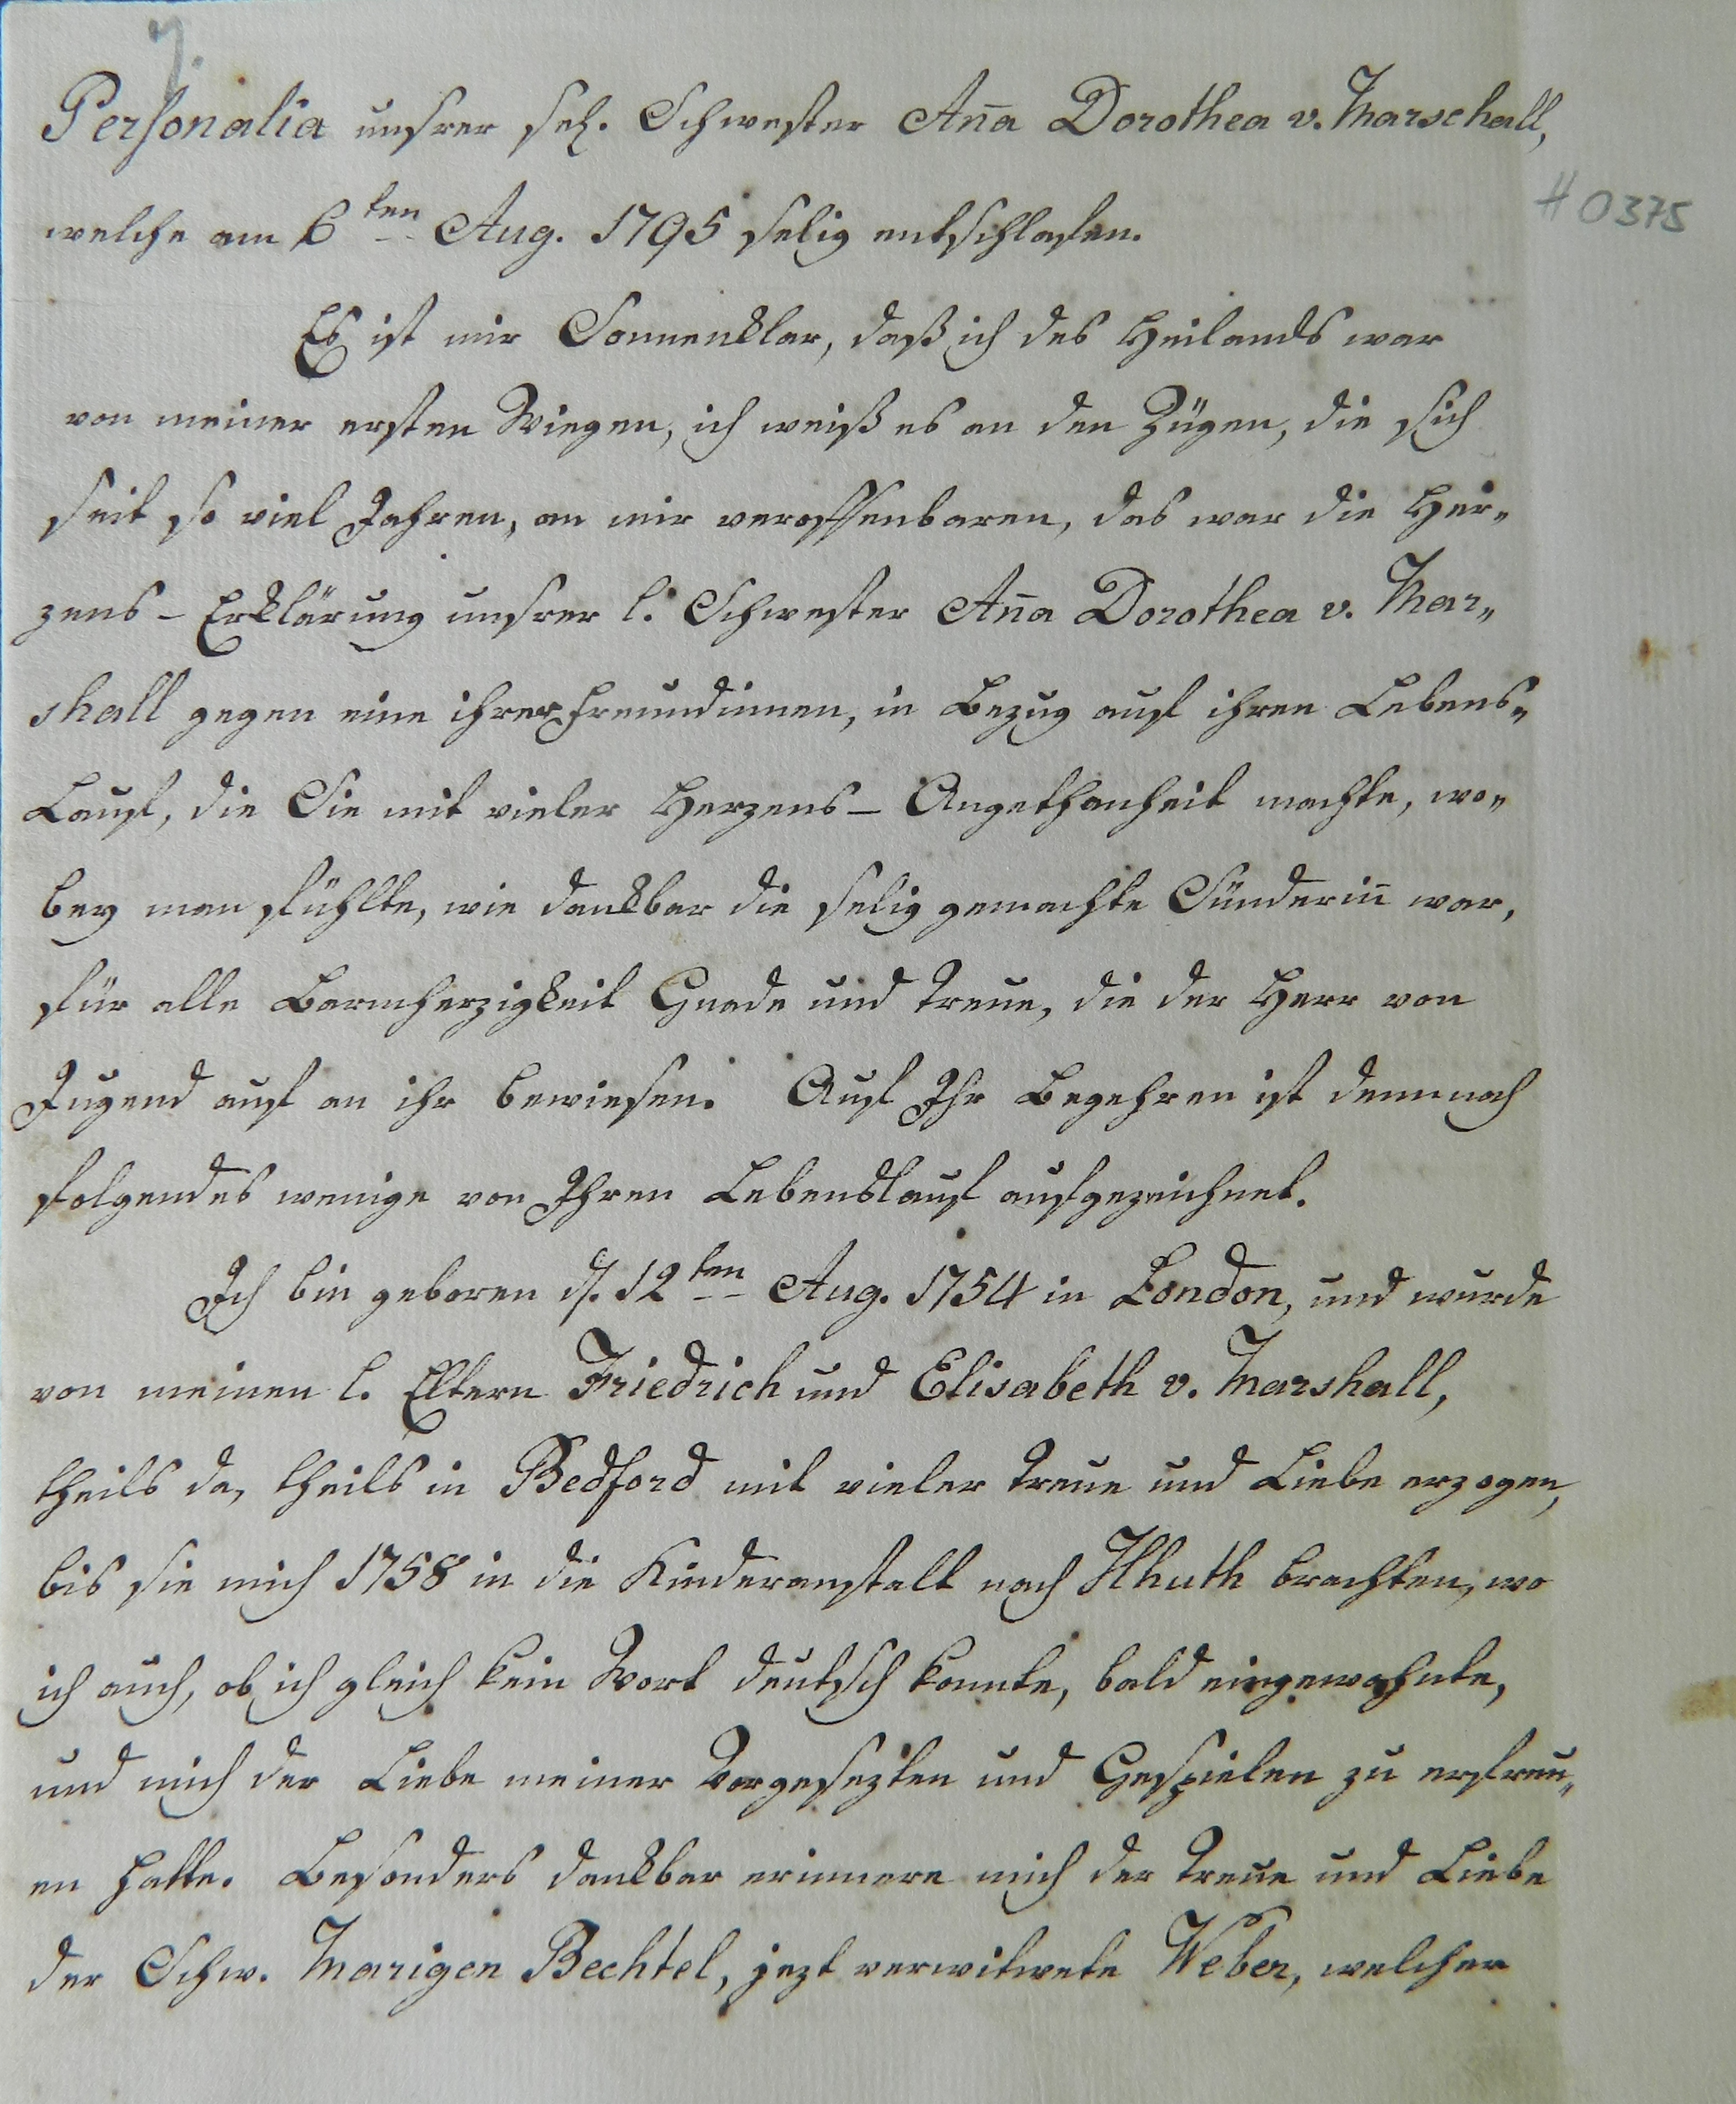 7.
Personalia unsrer sel. Schwester Aña Dorothea v. Marschall,
# 0375
welche am 6ten Aug. 1795 selig entschlafen.
Es ist mir Sonnenklar, daß ich des Heilands war
von meiner ersten Wiegen, ich weiß es an den Zügen, die sich
seit so viel Jahren, an mir veroffenbaren, das war die Her„
zens-Erklärung unsrer l. Schwester Aña Dorothea v. Mar„
shall gegen eine ihrer Freundinnen, in Bezug auf ihren Lebens„
Lauf, die Sie mit vieler Herzens-Angethanheit machte, wo„
bey man fühlte, wie dankbar die selig gemachte Sünderiñ war,
für alle Barmherzigkeit Gnade und Treue, die der Herr von
Jugend auf an ihr bewiesen. Auf Ihr Begehren ist demnach
folgendes wenige von Ihren Lebenslauf aufgezeichnet.
Ich bin geboren d. 12ten Aug. 1754 in London, und wurde
von meinen l. Eltern Friedrich und Elisabeth v. Marshall,
theils da, theils in Bedford mit vieler Treue und Liebe erzogen,
bis sie mich 1758 in die Kinderanstalt nach Hhuth brachten, wo
ich auch, ob ich gleich kein Wort deutsch konnte, bald eingewohnte,
und mich der Liebe meiner Vorgesezten und Gespielen zu erfreu„
en hatte. Besonders dankbar erinnere mich der Treue und Liebe
der Schw. Marigen Bechtel, jezt verwitwete Weber, welcher